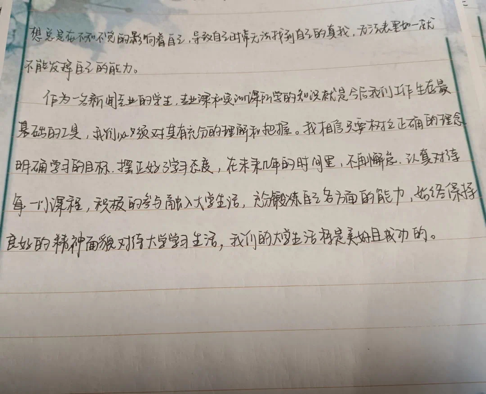 想总是在不知不觉的影响着自己,导致自己时常无法找到自己的真我,方法表里如一就
不能发挥自己的能力。
作为一名新闻专业的学生,专业课和实训课所学的知识就是今后我们工作生在最
基础的工具,我们必须对其有充分的理解和把握。我相信只要树立正确的理念
明确学习的目标,摆正好学习态度,在未来几年的时间里,不再懈怠,认真对待
每一门课程,积极的参与融入大学生活,去锻炼自己各方面的能力,始终保持
良好的精神面貌对待大学学习生活,我们的大学生活将是美好且成功的。